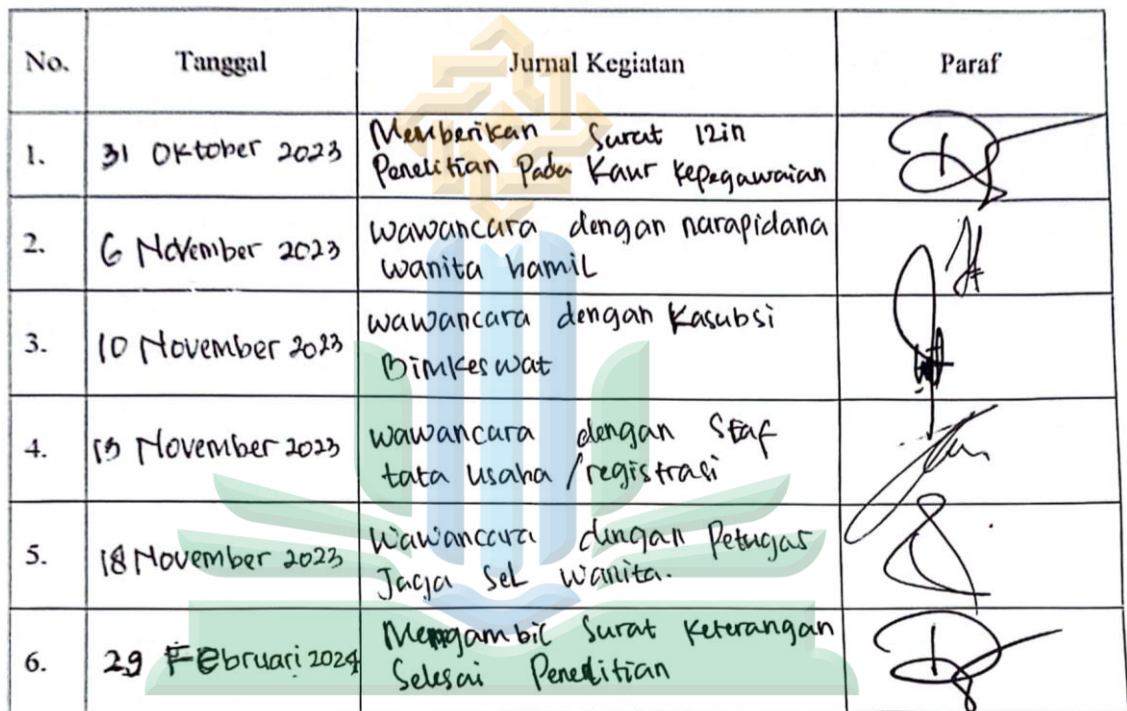 No. Tanggal Jurnal Kegiatan Paraf
1. 31 Oktober 2023 Memberikan Surat Izin
Penelitian Pada Kaur Kepegawaian
2. 6 November 2023 wawancara dengan narapidana
wanita hamil
3. 10 November 2023 wawancara dengan Kasubsi
Bimkeswat
4. 13 November 2023 wawancara dengan Staf
tata usaha / registrasi
5. 18 November 2023 Wawancara dengan Petugas
Jaga Sel Wanita.
6. 29 Februari 2024 Mengambil Surat Keterangan
Selesai Penelitian